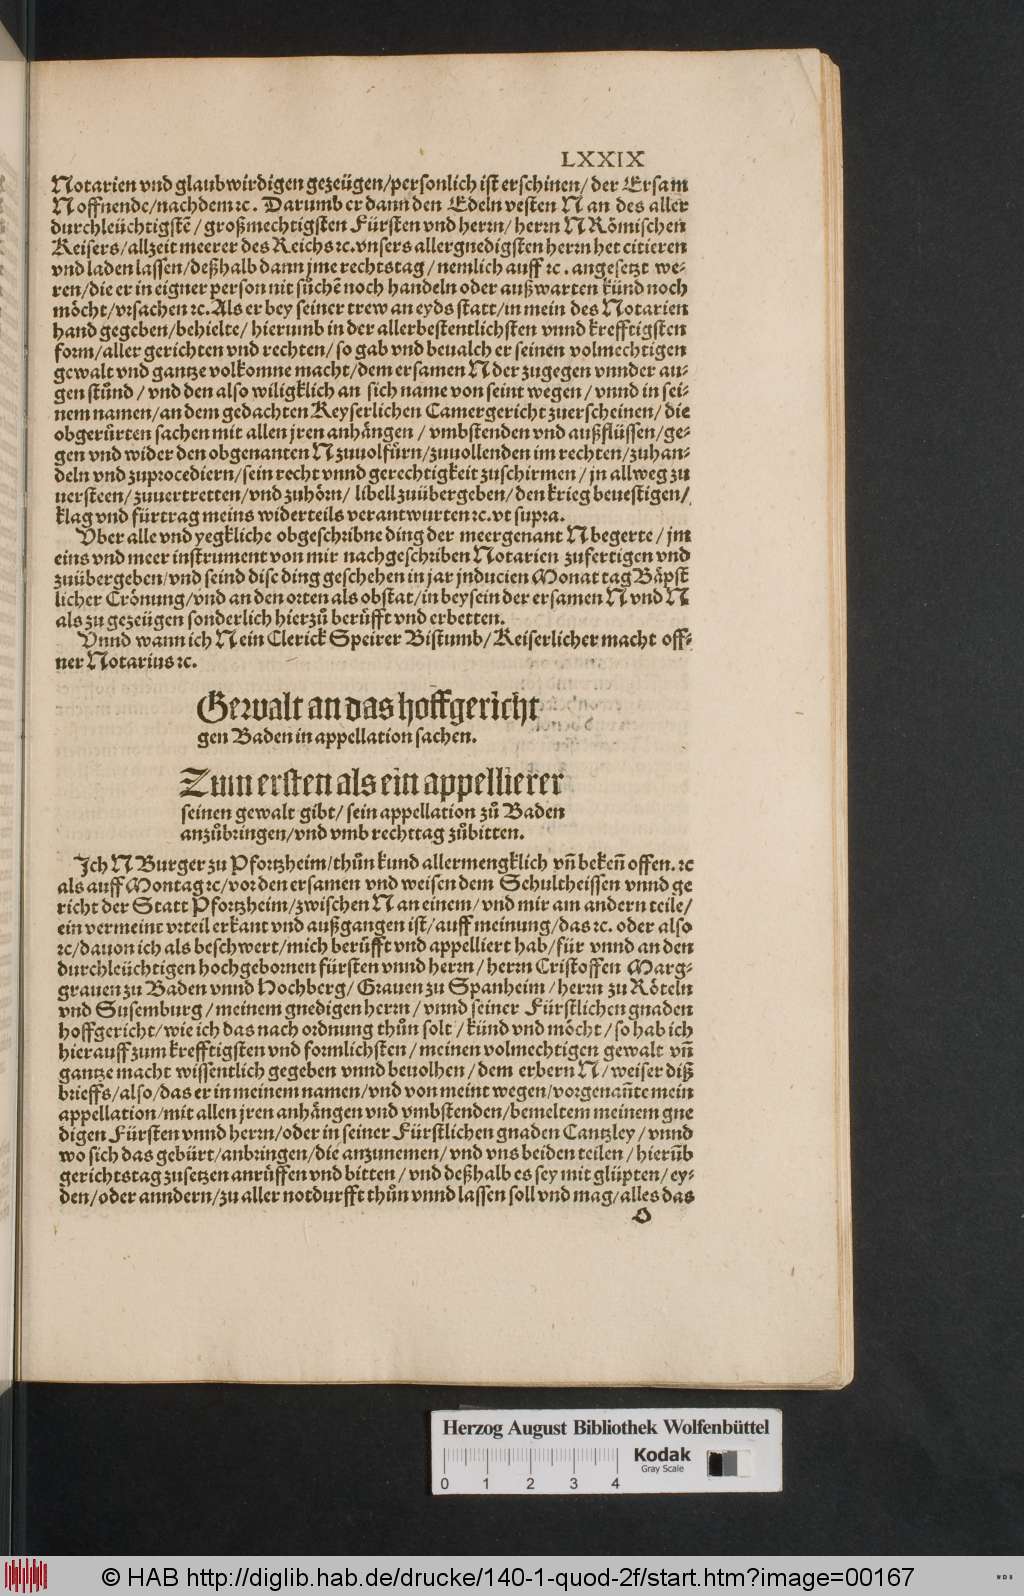 LXXIX
Notarien vnd glaubwirdigen gezeügen/personlich ist erschinen/ der Ersam
N offnende/nachdem ꝛc. Darumb er dann den Edeln vesten N an des aller
durchleüchtigstẽ / großmechtigsten Fürsten vnd herrn/ herrn N Römischen
Keisers/allzeit meerer des Reichs ꝛc.vnsers allergnedigsten herrn het citieren
vnd laden lassen/deßhalb dann jme rechtstag / nemlich auff ꝛc . angesetzt we-
ren/die er in eigner person nit suͤchẽ noch handeln oder außwarten künd noch
möcht/vrsachen ꝛc.Als er bey seiner trew an eyds statt/in mein des Notarien
hand gegeben/behielte/ hierumb in der allerbestentlichsten vnnd krefftigsten
form/aller gerichten vnd rechten/ so gab vnd beualch er seinen volmechtigen
gewalt vnd gantze volkomne macht/dem ersamen N der zugegen vnnder au-
gen stuͤnd / vnd den also wiligklich an sich name von seint wegen / vnnd in sei-
nem namen/an dem gedachten Keyserlichen Camergericht zuerscheinen/ die
obgeruͤrten sachen mit allen jren anhängen / vmbstenden vnd außflüssen/ge-
gen vnd wider den obgenanten N zuuolfuͤrn/zuuollenden im rechten/zuhan-
deln vnd zuprocediern/sein recht vnnd gerechtigkeit zuschirmen / jn allweg zu
uersteen/zuuertretten/vnd zuhörn/ libell zuübergeben/den krieg beuestigen/
klag vnd fürtrag meins widerteils verantwurten ꝛc.vt supra.
Vber alle vnd yegkliche obgeschribne ding der meergenant N begerte / jm
eins vnd meer instrument von mir nachgeschriben Notarien zufertigen vnd
zuübergeben/vnd seind dise ding geschehen in jar jnducien Monat tag Bäpst
licher Crönung/vnd an den orten als obstat/in beysein der ersamen N vnd N
als zu gezeügen sonderlich hierzuͦ beruͤfft vnd erbetten.
Vnnd wann ich N ein Clerick Speirer Bistumb/Keiserlicher macht off-
ner Notarius ꝛc.
Gewalt an das hoffgericht
gen Baden in appellation sachen.
Zum ersten als ein appellierer
seinen gewalt gibt/ sein appellation zuͦ Baden
anzuͦbringen/vnd vmb rechttag zuͦbitten.
Ich N Burger zu Pfortzheim/thuͦn kund allermengklich vñ bekeñ offen. ꝛc
als auff Montag ꝛc/vor den ersamen vnd weisen dem Schultheissen vnnd ge
richt der Statt Pfortzheim/zwischen N an einem/ vnd mir am andern teile/
ein vermeint vrteil erkant vnd außgangen ist/auff meinung/das ꝛc. oder also
ꝛc/dauon ich als beschwert/mich beruͤfft vnd appelliert hab/für vnnd an den
durchleüchtigen hochgebornen fürsten vnnd herrn/ herrn Cristoffen Marg-
grauen zu Baden vnnd Hochberg/ Grauen zu Spanheim / herrn zu Röteln
vnd Susemburg / meinem gnedigen herrn / vnnd seiner Fürstlichen gnaden
hoffgericht/wie ich das nach ordnung thuͦn solt / künd vnd möcht / so hab ich
hierauff zum krefftigsten vnd formlichsten / meinen volmechtigen gewalt vñ
gantze macht wissentlich gegeben vnnd beuolhen / dem erbern N / weiser diß
brieffs/also/das er in meinem namen/vnd von meint wegen/vorgenañte mein
appellation/mit allen jren anhängen vnd vmbstenden/bemeltem meinem gne
digen Fürsten vnnd herrn/oder in seiner Fürstlichen gnaden Cantzley / vnnd
wo sich das gebürt/anbringen/die anzunemen/vnd vns beiden teilen / hierũb
gerichtstag zusetzen anruͤffen vnd bitten / vnd deßhalb es sey mit glüpten/ ey-
den/oder anndern/zu aller notdurfft thuͦn vnnd lassen soll vnd mag/alles das
O
Herzog August Bibliothek Wolfenbüttel
Kodak
Gray Scale
0 1 2 3 4
© HAB http://diglib.hab.de/drucke/140-1-quod-2f/start.htm?image=00167